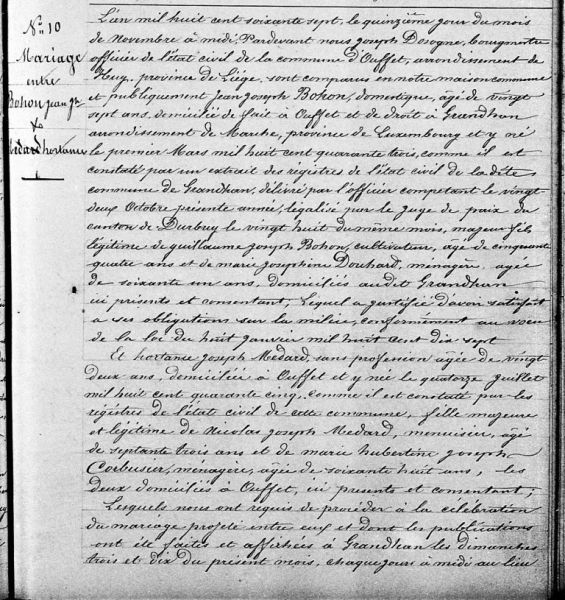 N° 10
Mariage
entre
Bohon jean Jh
&
Médard hortance
L'an mil huit cent soixante sept, le quinzième jour du mois
de Novembre à midi, Pardevant nous Joseph Desogne, bourgmestre
officier de l'état civil de la commune d'Ouffet, arrondissement de
Huy, province de Liége, sont comparus en notre maison commune
et publiquement Jean Joseph Bohon, domestique, âgé de vingt
sept ans, domicilié de fait à Ouffet et de droit à Grandhan
arrondissement de Marche, province de Luxembourg et y né
le premier Mars mil huit cent quarante trois, comme il est
constaté par un extrait des registres de l'état civil de la dite
commune de Grandhan, délivré par l'officier compétant le vingt
deux Octobre présente année, légalisé par le juge de paix du
canton de Durbuy le vingt huit du même mois, majeur fils
légitime de guillaume joseph Bohon, cultivateur, âgé de cinquante
quatre ans et de marie Josephine Douhard, menagère, agée
de soixante un ans, domiciliés audit Grandhan
ici présents et consentant, Lequel a justifié d'avoir satisfait
a ses obligations sur la milice, conformément au vœu
de la loi du huit janvier mil huit cent dix sept
Et hortance joseph Medard, sans profession agée de vingt
deux ans, domiciliée à Ouffet et y née le quatorze juillet
mil huit cent quarante cinq, comme il est constaté par les
régistres de l'état civil de cette commune, fille majeure
et légitime de Nicolas joseph Medard, menuisier, âgé
de septante trois ans et de marie hubertine joseph
Corbusier, ménagère, agée de soixante huit ans, les
deux domiciliés à Ouffet, ici presents et consentant;
Lesquels nous ont requis de procéder à la célébration
du mariage projeté entre eux et dont les publications
ont été faites et affichées à Grandhan les dimanches
trois et dix du présent mois, chaque jours à midi au lieu